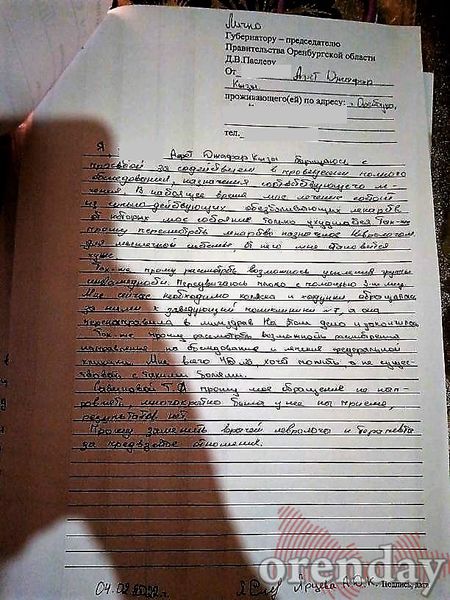 Лично
Губернатору – председателю
Правительства Оренбургской области
Д.В.Паслеру
От Арет Джафар
Кызы
проживающего(ей) по адресу: г. Оренбург,
тел.
Я Арет Джафар Кызы обращаюсь с
просьбой за содействием в проведении полного
обследования, назначения соответствующего ле-
чения. В настоящее время мое лечение состоит
из сильно-действующих обезболивающих лекарств
от которых мое состояние только ухудшается. Так-же
прошу пересмотреть лекарство назначеное Неврологом
для мышечной системы от него мне становится
хуже.
Так-же прошу рассмотреть возможность усиления группы
инвалидности. Передвигаюсь плохо с помощью
Мне сейчас необходимо коляска и ходунки обращалась
за ними к заведующей поликлиники №7, а она
перенаправила в минздрав На этом дело и закончилось
Так-же прошу рассмотреть возможность
направления на обследование и лечение федеральной
клиники. Мне всего хочу пожить, а не сущес-
твовать с такими болями.
Савиновой Т.Ф прошу мое обращение не нап-
ровлять, многократно была у нее на приеме,
результатов нет.
Прошу заменить врачей невролога и терапевта
за предвзятое отношение.
04.02.2022г. Ярцева А.Ю.К. Подпись, дата
orenday